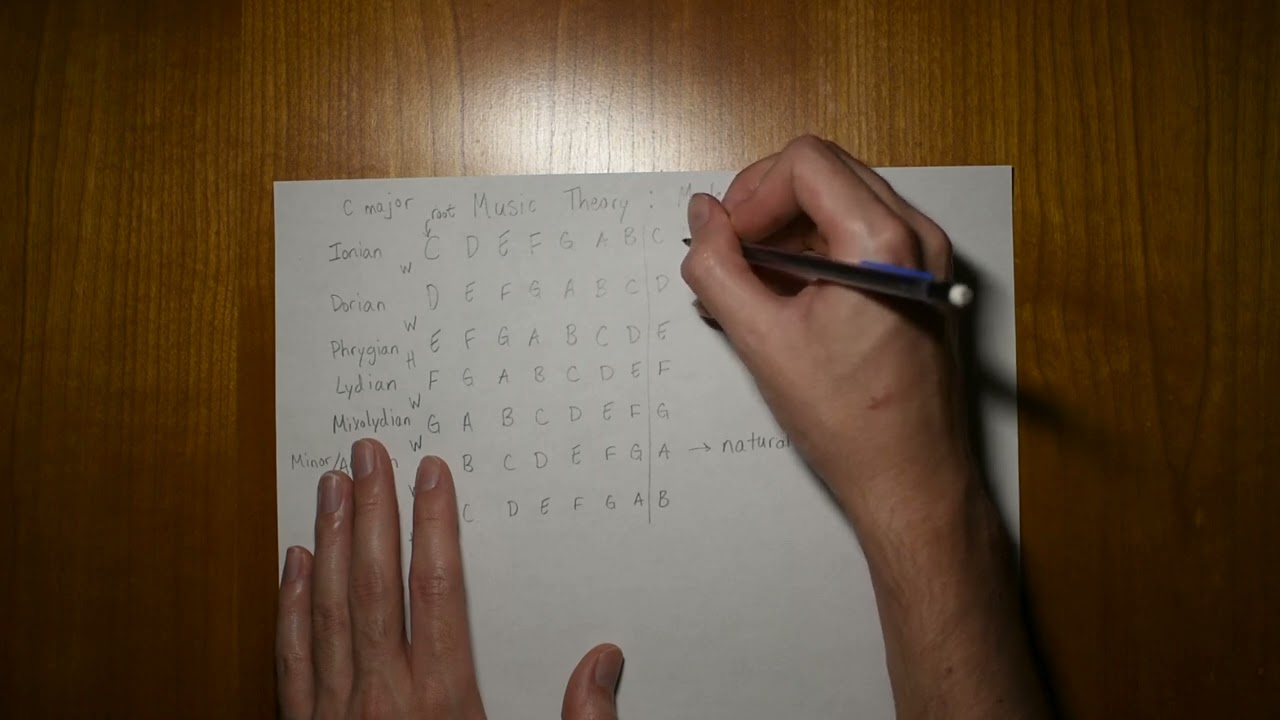 C major root Music Theory :
Ionian C D E F G A B C
W
Dorian D E F G A B C D
W
Phrygian E F G A B C D E
H
Lydian F G A B C D E F
W
Mixolydian G A B C D E F G
W
Minor/ B C D E F G A → natural
C D E F G A B